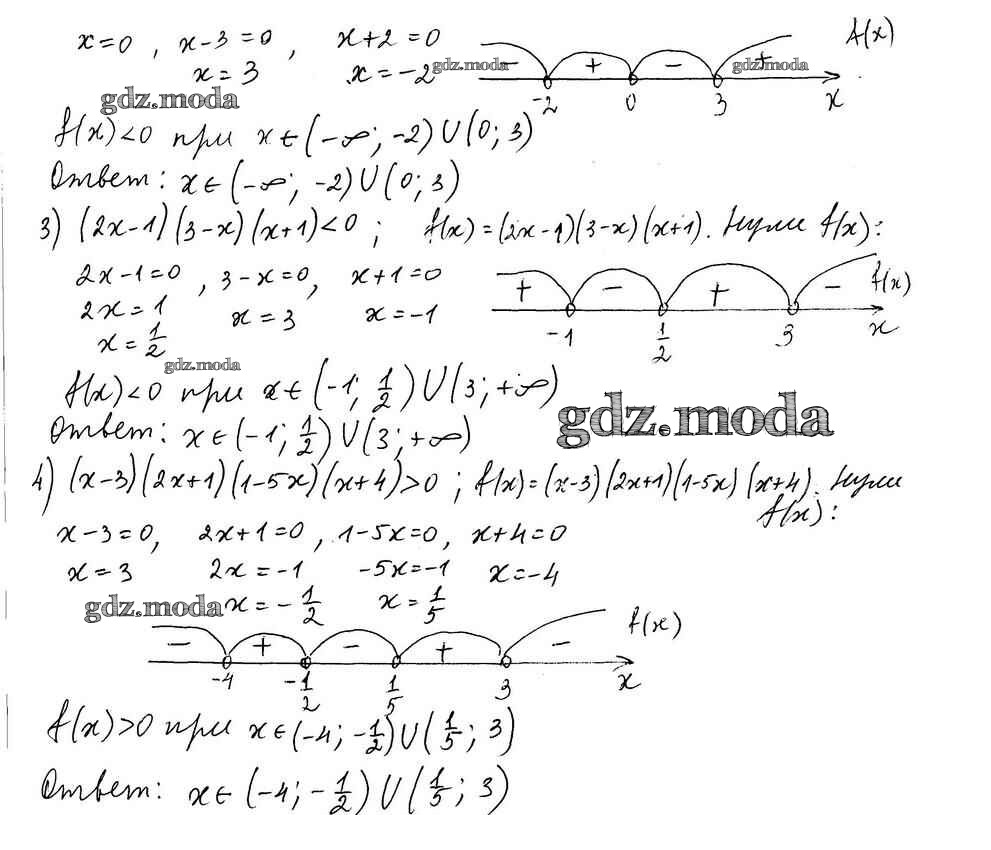 x=0 , x-3=0 , x+2=0 f(x)
x=3 x=-2 gdz.moda - + - + gdz.moda
gdz.moda -2 0 3 x
f(x)<0 при x∈(-∞; -2)∪(0; 3)
Ответ: x∈(-∞; -2)∪(0; 3)
3) (2x-1)(3-x)(x+1)<0 ; f(x)=(2x-1)(3-x)(x+1). Нули f(x):
2x-1=0 , 3-x=0, x+1=0 + - + - f(x)
2x=1 x=3 x=-1 -1 1/2 3 x
x=1/2
gdz.moda
f(x)<0 при x∈(-1; 1/2)∪(3; +∞)
gdz.moda
Ответ: x∈(-1; 1/2)∪(3; +∞)
4) (x-3)(2x+1)(1-5x)(x+4)>0 ; f(x)=(x-3)(2x+1)(1-5x)(x+4). Нули
f(x):
x-3=0, 2x+1=0 , 1-5x=0, x+4=0
x=3 2x=-1 -5x=-1 x=-4
gdz.moda x=-1/2 x=1/5
- + - + - f(x)
-4 -1/2 1/5 3 x
f(x)>0 при x∈(-4; -1/2)∪(1/5; 3)
Ответ: x∈(-4; -1/2)∪(1/5; 3)